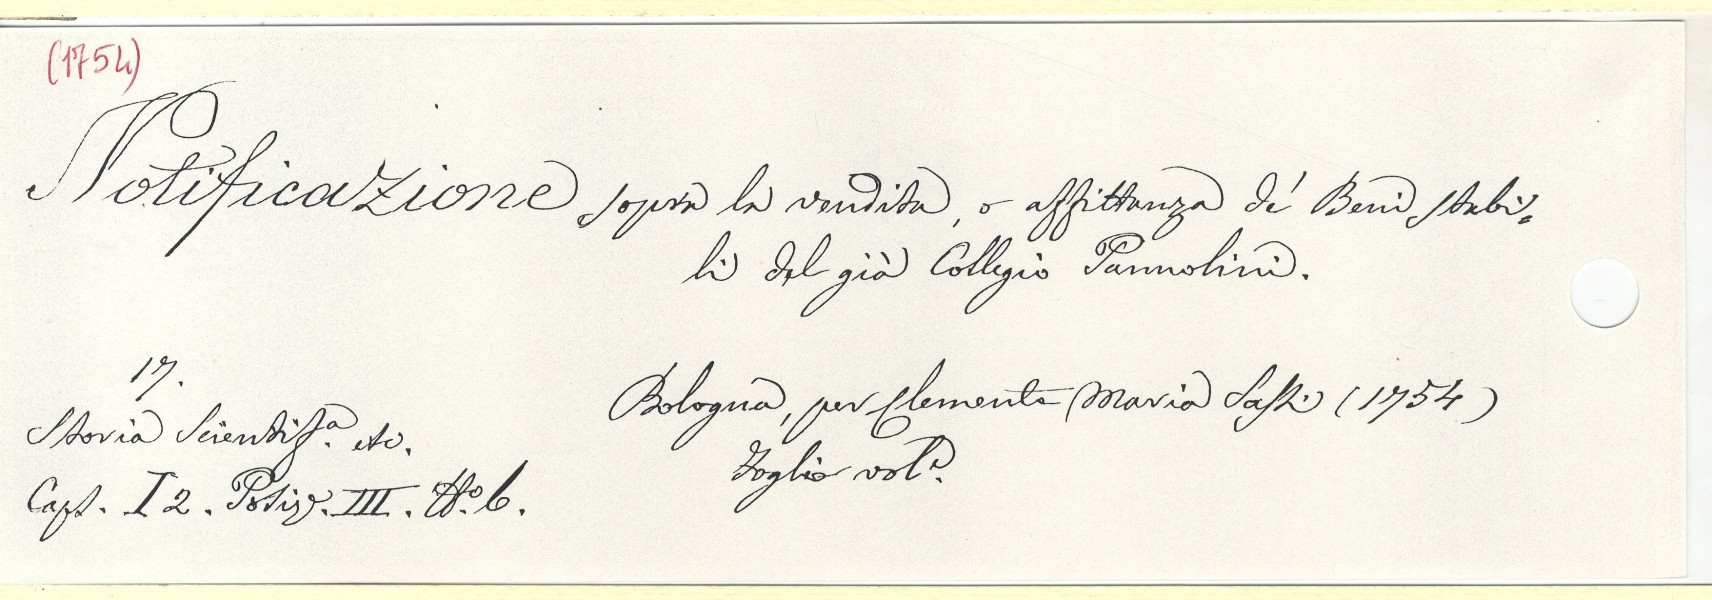 (1754)
Notificazione sopra la vendita, o affittanza de' Beni stabi=
li del già Collegio Pannolini.
17.
Bologna, per Clemente Maria Sassi (1754)
Storia Scientifª. etc.
Foglio vol.º
Caps. I 2. Posiz. III. Nº. 6.